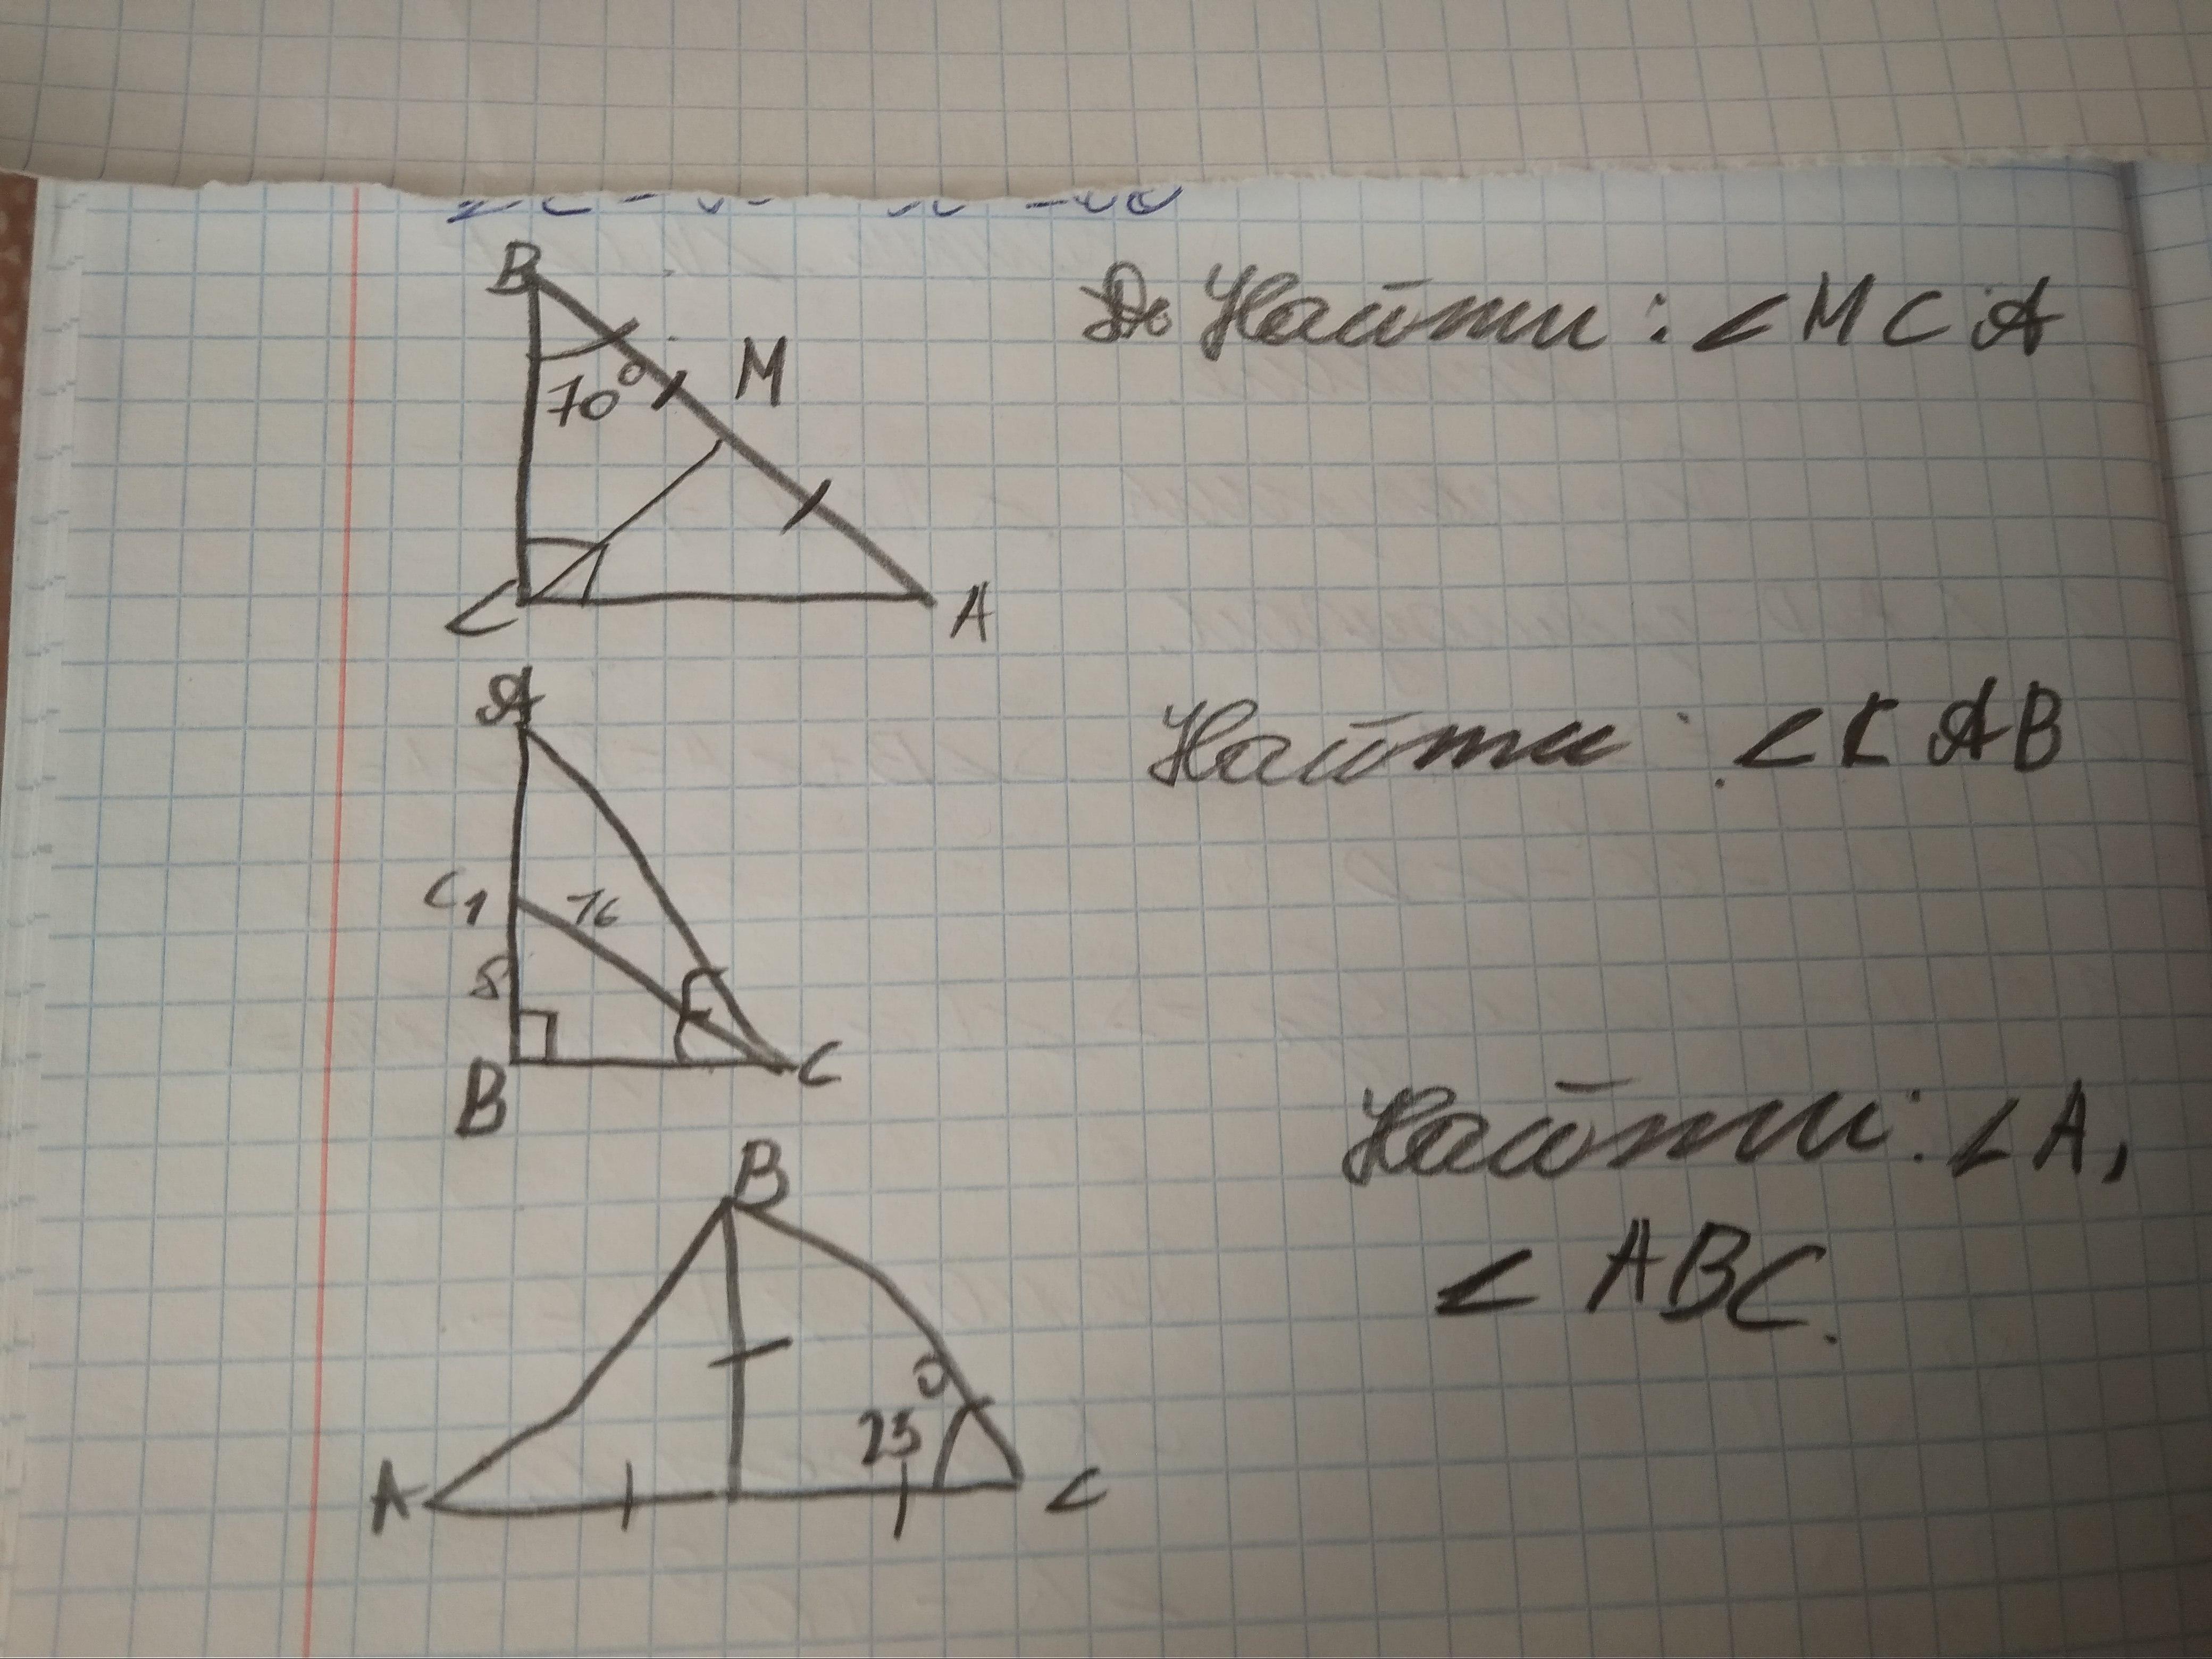 B
Найти: ∠MCA
M
70°
C
A
A
Найти: ∠CAB
C₁
16
8
B
C
Найти: ∠A,
B
∠ABC.
25°
A
C